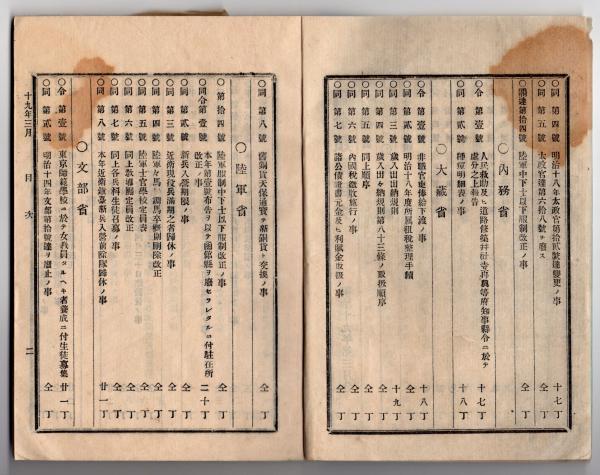 ○同 第四號 明治十八年太政官第拾貳號達變更ノ事 十七丁
○同 第五號 太政官達第六拾八號ヲ廢ス 仝丁
○閣達第拾四號 陸軍中下士以下服制改正ノ事 仝丁
○內務省
○令 第壹號 人民救助及ヒ道路修築幷社寺再興等府知事縣令ニ於テ處分之上報告 十七丁
○同 第貳號 種痘明細表ノ事 十八丁
○大藏省
○令 第壹號 非職官吏俸給下渡ノ事 十八丁
○同 第貳號 明治十八年度所屬租稅整理手續 仝丁
○同 第三號 歲入歲出出納規則 十九丁
○同 第四號 歲入出々納規則第八十三條ノ取扱順序 仝丁
○同 第五號 同上順序 仝丁
○同 第六號 內國租稅徵收施行ノ事 仝丁
○同 第七號 諸公債證書元金及ヒ利賦金取扱ノ事 仝丁
○同 第八號 舊銅貨天保通寶ヲ新銅貨ト交換ノ事 仝丁
○陸軍省
○第拾四號 陸軍服制中下士以下服制改正ノ事 仝丁
○同令第壹號 本年第壹號布告ヲ以テ函館縣ヲ廢セラレタルニ付駐在所改正ノ事 二十丁
○同 第貳號 新兵入營期限ノ事 仝丁
○同 第三號 近衛現役兵滿期之者歸休ノ事 仝丁
○同 第四號 陸軍々馬 仝丁
○同 第五號 陸軍士官學校定員表 仝丁
○同 第六號 同上敎導團定員改正 仝丁
○同 第七號 同上各兵科生徒召募ノ事 仝丁
○同 第八號 本年近衛鎭臺新兵入營前除隊歸休ノ事 廿一丁
○文部省
○令 第壹號 東京師範學校ニ於テ女敎員タルヘキ者養成ニ付生徒募集 廿一丁
○同 第貳號 明治十四年文部第拾號達ヲ廢止ノ事 仝丁
十九年三月 目次 二